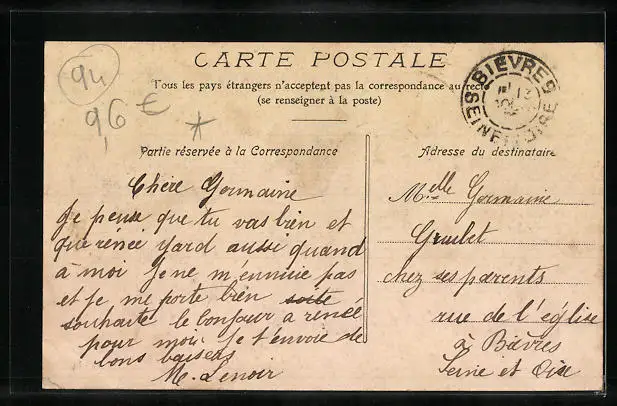 94
9,6 €
*
CARTE POSTALE
Tous les pays étrangers n'acceptent pas la correspondance au recto
(se renseigner à la poste)
BIÈVRES
SEINE ET OISE
Partie réservée à la Correspondance
Chère Germaine
Je pense que tu vas bien et
que rénée yard aussi quand
à moi Je ne m ennuie pas
et Je me porte bien soite
souhaite le bonjour a renée
pour moi Je t'envoie de
bons baisers
M. Lenoir
Adresse du destinataire
Melle Germaine
Graulet
chez ses parents
rue de l'église
à Bièvres
Seine et Oise